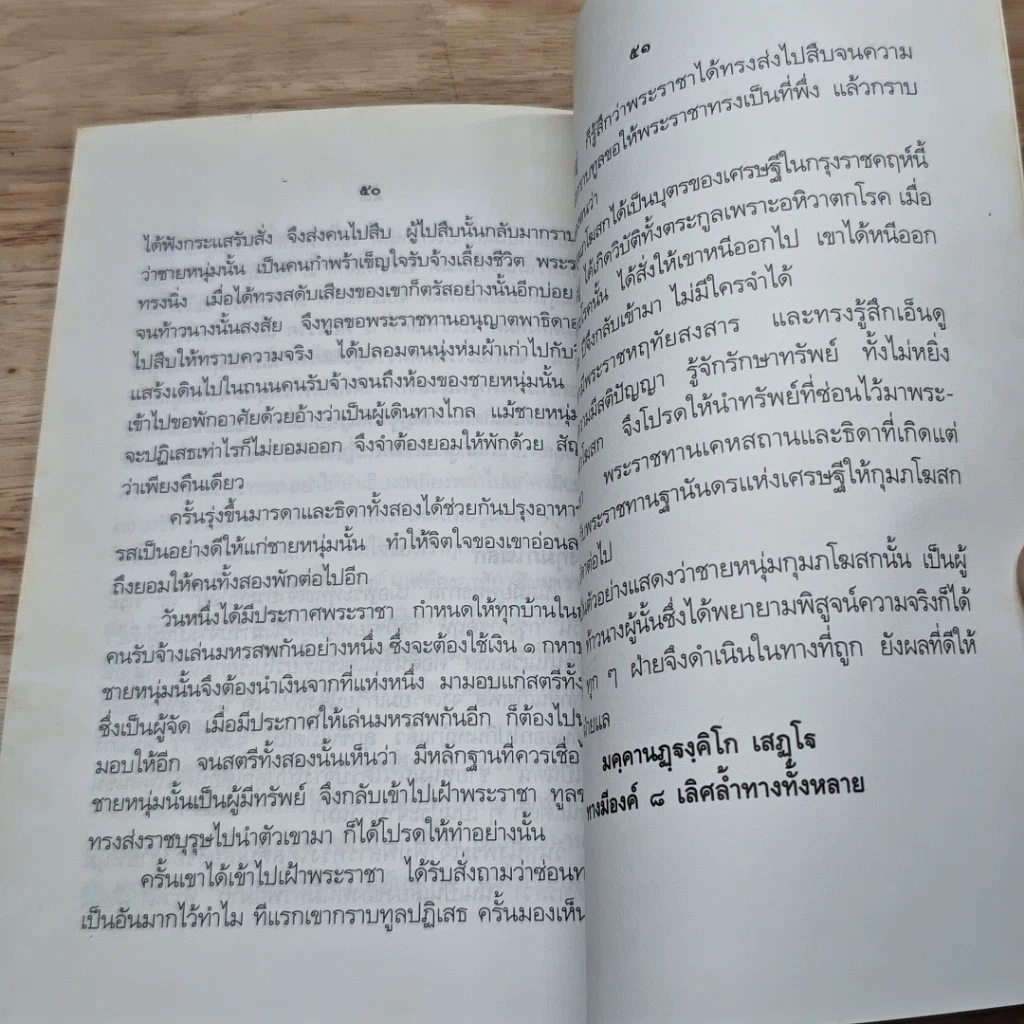 ๕๐
ได้ฟังกระแสรับสั่ง จึงส่งคนไปสืบ ผู้ไปสืบนั้นกลับมากราบ
ว่าชายหนุ่มนั้น เป็นคนกำพร้าเข็ญใจรับจ้างเลี้ยงชีวิต
ทรงนิ่ง เมื่อได้ทรงสดับเสียงของเขาก็ตรัสอย่างนั้นอีกบ่อย
จนท้าวนางนั้นสงสัย จึงทูลขอพระราชทานอนุญาตพาธิดา
ไปสืบให้ทราบความจริง ได้ปลอมตนนุ่งห่มผ้าเก่าไปกับ
แสร้งเดินไปในถนนคนรับจ้างจนถึงห้องของชายหนุ่มนั้น
เข้าไปขอพักอาศัยด้วยอ้างว่าเป็นผู้เดินทางไกล แม้ชายหนุ่ม
จะปฏิเสธเท่าไรก็ไม่ยอมออก จึงจำต้องยอมให้พักด้วย
ว่าเพียงคืนเดียว
ครั้นรุ่งขึ้นมารดาและธิดาทั้งสองได้ช่วยกันปรุงอาหา
รสเป็นอย่างดีให้แก่ชายหนุ่มนั้น ทำให้จิตใจของเขาอ่อนล
ถึงยอมให้คนทั้งสองพักต่อไปอีก
วันหนึ่งได้มีประกาศพระราชา กำหนดให้ทุกบ้านใน
คนรับจ้างเล่นมหรสพกันอย่างหนึ่ง ซึ่งจะต้องใช้เงิน ๑ กหา
ชายหนุ่มนั้นจึงต้องนำเงินจากที่แห่งหนึ่ง มามอบแก่สตรีทั้ง
ซึ่งเป็นผู้จัด เมื่อมีประกาศให้เล่นมหรสพกันอีก ก็ต้องไป
มอบให้อีก จนสตรีทั้งสองนั้นเห็นว่า มีหลักฐานที่ควรเชื่อ
ชายหนุ่มนั้นเป็นผู้มีทรัพย์ จึงกลับเข้าไปเฝ้าพระราชา ทูล
ทรงส่งราชบุรุษไปนำตัวเขามา ก็ได้โปรดให้ทำอย่างนั้น
ครั้นเขาได้เข้าไปเฝ้าพระราชา ได้รับสั่งถามว่าซ่อน
เป็นอันมากไว้ทำไม ทีแรกเขากราบทูลปฏิเสธ ครั้นมองเห็น
๕๑
ก็รู้สึกว่าพระราชาได้ทรงส่งไปสืบจนความ
กราบทูลขอให้พระราชาทรงเป็นที่พึ่ง แล้วกราบ
โฆสกได้เป็นบุตรของเศรษฐีในกรุงราชคฤห์นี้
ได้เกิดวิบัติทั้งตระกูลเพราะอหิวาตกโรค เมื่อ
โรคนั้น ได้สั่งให้เขาหนีออกไป เขาได้หนีออก
จึงกลับเข้ามา ไม่มีใครจำได้
มีพระราชหฤทัยสงสาร และทรงรู้สึกเอ็นดู
ามมีสติปัญญา รู้จักรักษาทรัพย์ ทั้งไม่หยิ่ง
โฆสก จึงโปรดให้นำทรัพย์ที่ซ่อนไว้มาพระ-
พระราชทานเคหสถานและธิดาที่เกิดแต่
พระราชทานฐานันดรแห่งเศรษฐีให้กุมภโฆสก
ต่อไป
ตัวอย่างแสดงว่าชายหนุ่มกุมภโฆสกนั้น เป็นผู้
ท้าวนางผู้นั้นซึ่งได้พยายามพิสูจน์ความจริงก็ได้
ทุก ๆ ฝ่ายจึงดำเนินในทางที่ถูก ยังผลที่ดีให้
ายแล
มคฺคานฏฺฐงฺคิโก เสฏฺโฐ
ทางมีองค์ ๘ เลิศล้ำทางทั้งหลาย